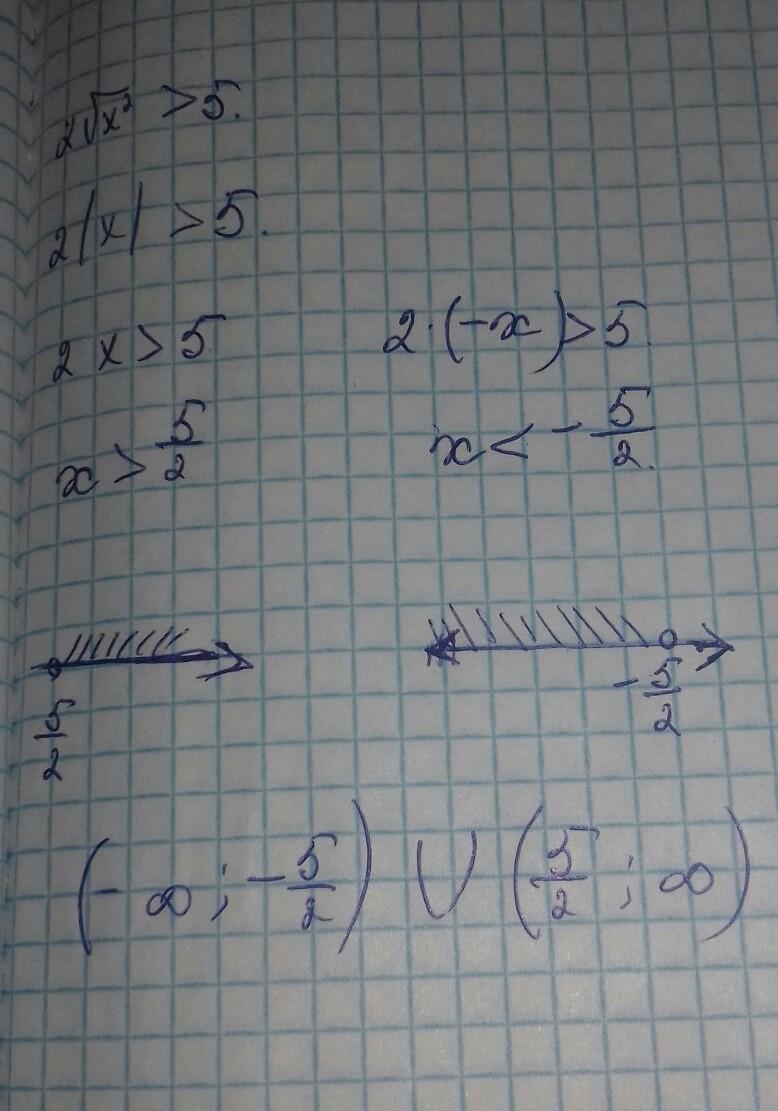 2√x² > 5.
2|x| > 5.
2x > 5 2·(-x) > 5
x > 5/2 x < - 5/2
5/2 - 5/2
(-∞; - 5/2) ∪ (5/2; ∞)